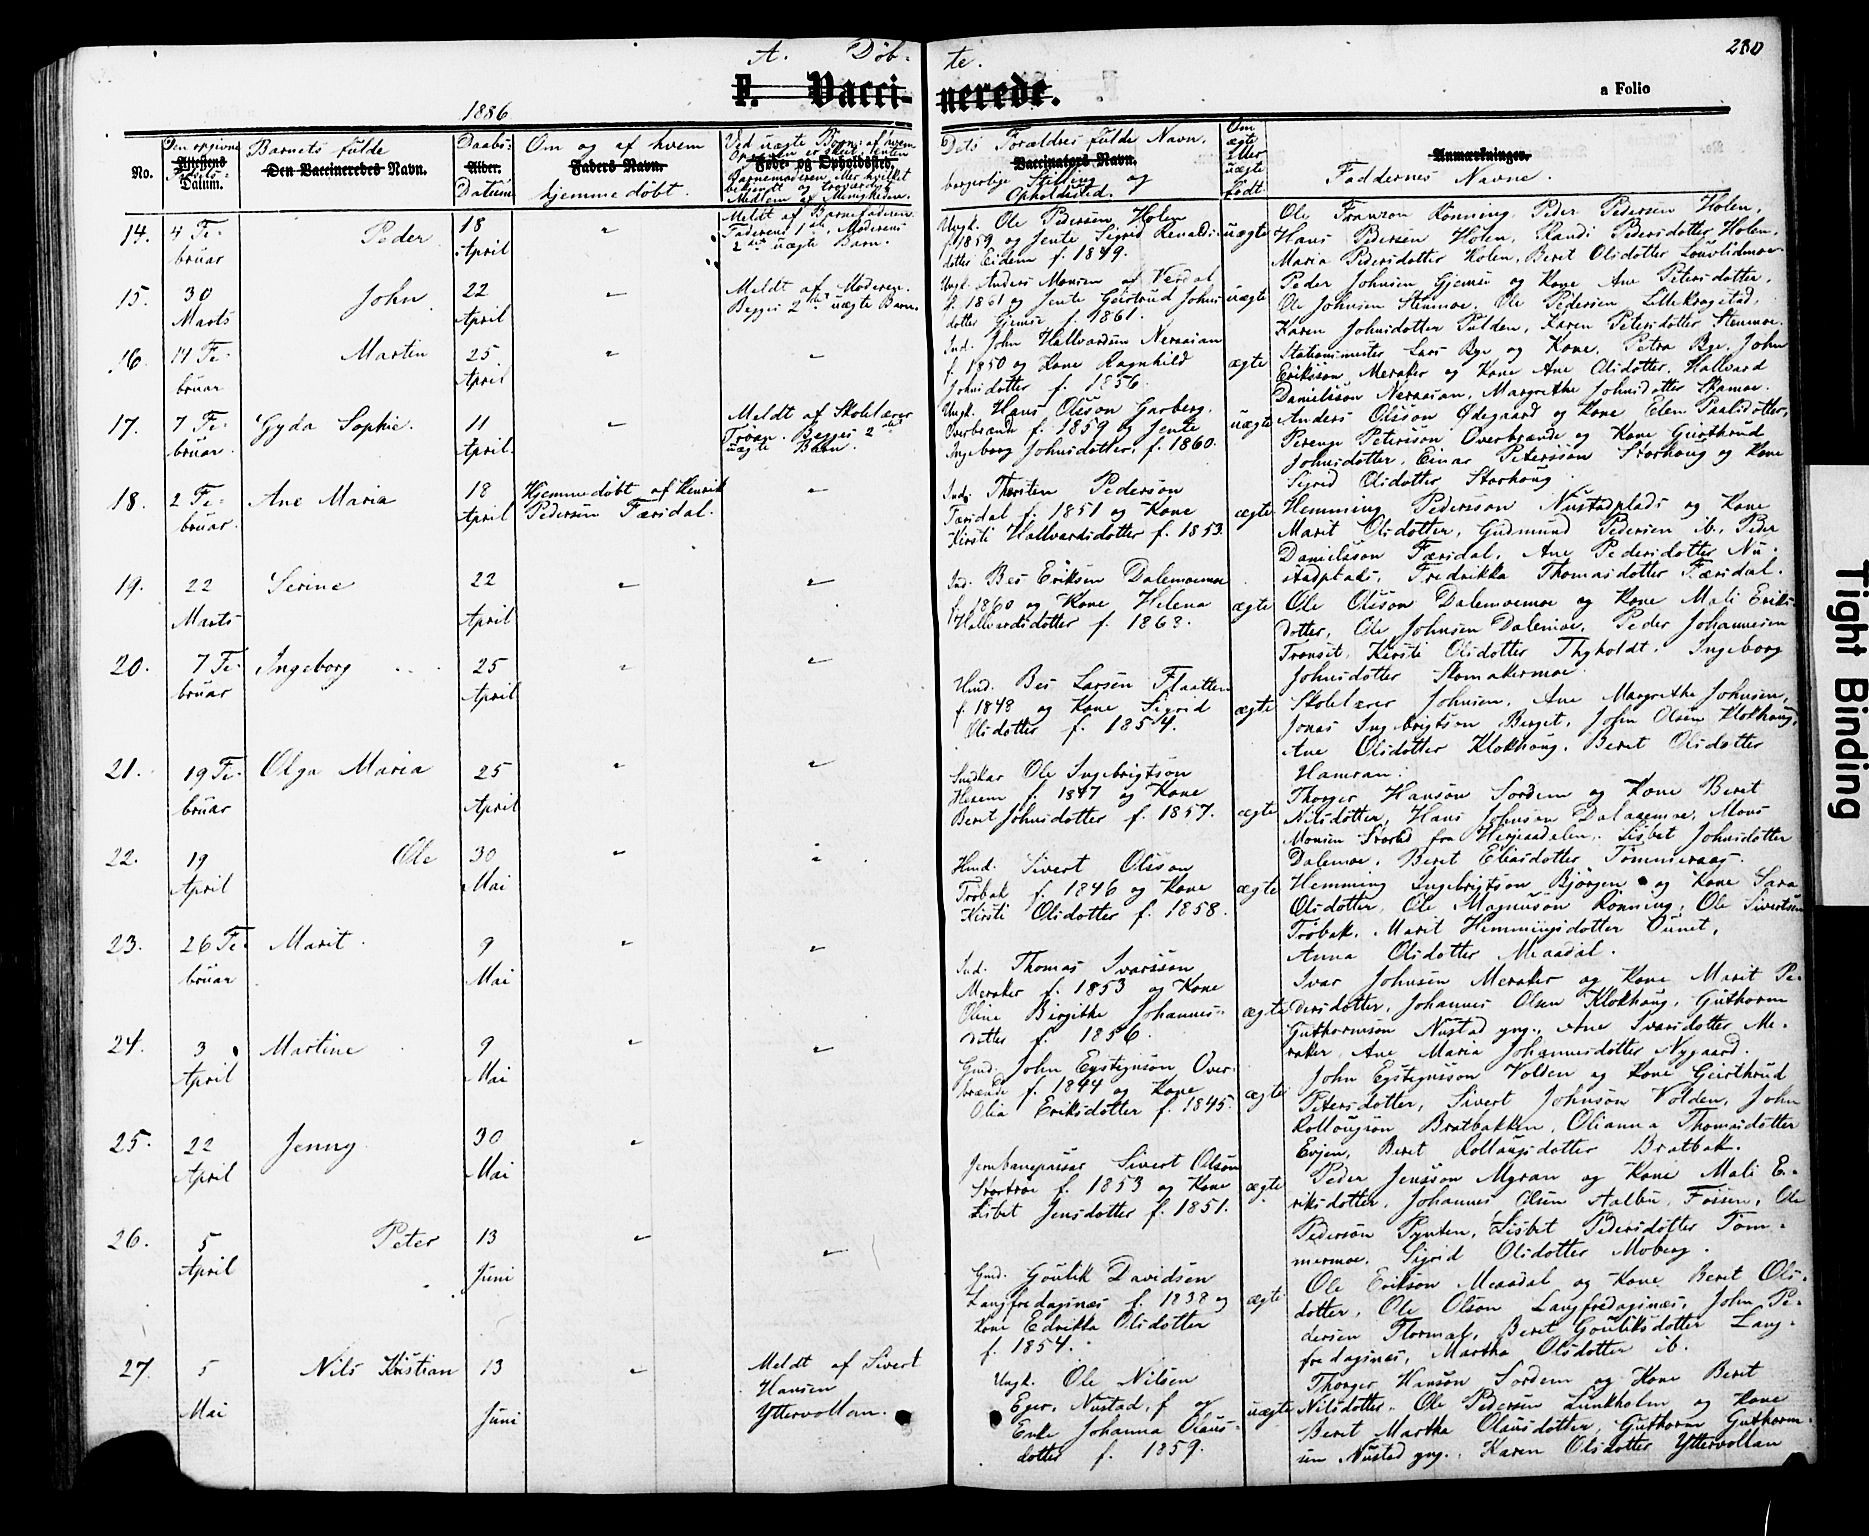 A. Døb-
te.
230
F. Vacci-
nerede.
a Folio
1886
No.
Den opgivne
Attestens
Datum.
Barnets fulde
Den Vaccineredes Navn.
Daabs-
Alder.
Datum
Om og af hvem
Faders Navn.
hjemmedøbt.
Ved uægte Børn: af hvem
Føde- og Opholdssted.
Dets Forældres fulde Navn,
Vaccinators Navn.
borgerlige Stilling og
Opholdssted.
Om
ægte
eller
uægte
født.
Anmærkninger.
Faddernes Navne.
14.
4 Fe-
bruar
Peder
18
April
"
Meldt af Barnefaderen.
Faderens 1ste, Moderens
2det uægte Barn.
Ungk. Ole Pedersen Holen
f. 1859 og Jente Sigrid
dotter Eidem f. 1849.
uægte
Ole Rønning, Peder Pedersen Holen,
Hans Pedersen Holen, Randi Pedersdotter Holen,
Maria Pedersdotter Holen, Beret Olsdotter
15.
30
Marts
John
22
April
"
Meldt af Moderen.
Begges 2det uægte Barn.
Ungk. Anders Monsen af Værdal
f. 1861 og Jente Geirtrud Johns-
dotter Gjemse f. 1861.
uægte
Peder Johnsen Gjemse og Kone Ane Petersdotter,
Ole Johnsen Stenmoe, Ole Pedersen Lillekragstad,
Karen Johnsdotter Pulden, Karen Petersdotter Stenmoe.
16.
14 Fe-
bruar
Martin
25
April
"
"
Ind. John Hallvardsen Neraaian
f. 1850 og Kone Ragnhild
Johnsdotter f. 1856.
ægte
Stationsmester Lars Bye og Kone Petra Bye, John
Eriksson Meraker og Kone Ane Olsdotter, Hallvard
Danielsson Neraaian, Margrethe Johnsdotter Skamoe.
17.
7 Fe-
bruar.
Gyda Sophie.
11
April
"
Meldt af Skolelærer
Trøan. Begges 2det
uægte Barn.
Ungk. Hans Olsson Garberg,
Overbrænde f. 1859 og Jente
Ingeborg Johnsdotter, f. 1860.
uægte
Anders Olsson Ødegaard og Kone Elen Paalsdotter,
Petersson Overbrænde og Kone Geirthrud
Johnsdotter, Einar Petersson Storhaug og Kone
Sigrid Olsdotter Storhaug.
18.
2 Fe-
bruar.
Ane Maria
18
April
Hjemmedøbt af Henrik
Pedersen Færsdal.
"
Ind. Thorsten Pederson
Færsdal f. 1851 og Kone
Kirsti Hallvardsdotter f. 1853.
ægte
Hemming Pedersson Nustadplads og Kone
Marit Olsdotter, Gudmund Pedersen ib., Peder
Danielsson Færsdal, Ane Pedersdotter Nu-
stadplads, Fredrikka Thomasdotter Færsdal.
19.
22
Marts
Serine
22
April
"
"
Ind. Bes Eriksen Dalemoemoe
f. 1860 og Kone Helena
Hallvardsdotter f. 1863.
ægte
Ole Olsson Dalemoemoe og Kone Mali Eriks-
dotter, Ole Johnsen Dalemoe, Peder Johannesen
Trønset, Kirsti Olsdotter Thyholdt, Ingeborg
Johnsdotter Skomakermoe.
20.
7 Fe-
bruar
Ingeborg
25
April
"
"
Hmd. Bes Larsen Flaatten
f. 1848 og Kone Sigrid
Olsdotter f. 1854.
ægte
Skolelærer Johnsen, Ane Margrethe Johnsen,
Jonas Ingebrigtsen Berget, John Olsen Klokhaug,
Ane Olsdotter Klokhaug, Beret Olsdotter
Hamran.
21.
19 Fe-
bruar
Olga Maria
25
April
"
"
Snedkar Ole Ingebrigtson
f. 1847 og Kone
Beret Johnsdotter f. 1857.
ægte
Thorger Hanson Sordem og Kone Beret
Nilsdotter, Hans Johnson Dalaaemoe, Mons
Monsen fra Herjeaadalen, Lisbet Johnsdotter
Dalemoe, Beret Eliasdotter Tømmeraas.
22.
19
April
Ole
30
Mai
"
"
Hmd. Sivert Olsson
Trøbak f. 1846 og Kone
Kirsti Olsdotter f. 1858.
ægte
Hemming Ingebrigtson Bjørgen og Kone Sara
Olsdotter, Ole Magnuson Rønning, Ole Sivertsen
Trøbak, Marit Hemmingsdotter
Anna Olsdotter Meaadal.
23.
26 Fe-
bruar
Marit
9
Mai
"
"
Ind. Thomas Ivarsson
Meraker f. 1853 og Kone
Oline Birgithe Johannes-
dotter f. 1856.
ægte
Ivar Johnsen Meraker og Kone Marit Pe-
dersdotter, Johannes Olsen Klokhaug, Guthorm
Guthormson Nustad yng., Ane Ivarsdotter Me-
raker, Ane Maria Johannesdotter Nygaard.
24.
3
April
Martine
9
Mai
"
"
Gmd. John Eysteynson Over-
brænde f. 1844 og Kone
Olia Eriksdotter f. 1845.
ægte
John Eysteynsson Volden og Kone Geirthrud
Petersdotter, Sivert Johnson Volden, John
Rolloughson Bratbakken, Olianna Thomasdotter
Evjen, Beret Bratbak.
25.
22
April
Jenny
30
Mai
"
Jernbanepasser Sivert Olson
Stortrøe f. 1853 og Kone
Lisbet Jensdotter f. 1851.
ægte
Peder Jensson Myran og Kone Mali E-
riksdotter, Johannes Olsen Aalbu, Fossen, Ole
Pederson Pynten, Lisbet Pedersdotter Tøm-
mermoe, Sigrid Olsdotter Moberg.
26.
5
April
Peter
13
Juni
"
"
Gmd. Goulik Davidsen
Langfredagsnæs f. 1838 og
Kone Edrikka Olsdotter
f. 1854.
ægte
Ole Erikson Meaadal og Kone Beret Ols-
dotter, Ole Olson Langfredagsnæs, John Pe-
dersen Flormæl, Beret Gouliksdotter Lang-
fredagsnæs, Martha Olsdotter ib.
27.
5
Mai
Nils Kristian
13
Juni
"
Meldt af Sivert
Hansen
Yttervollan.
Ungk. Ole Nilsen
Eger, Nustad, f. og
Enke Johanna Olaus-
dotter f. 1859.
uægte
Thorger Hanson Sordem og Kone Beret
Nilsdotter, Ole Pedersen Lunkholm og Kone
Beret Martha Olausdotter, Guthorm Guthorm-
sen Nustad yng., Karen Olsdotter Yttervollan
Tight Binding